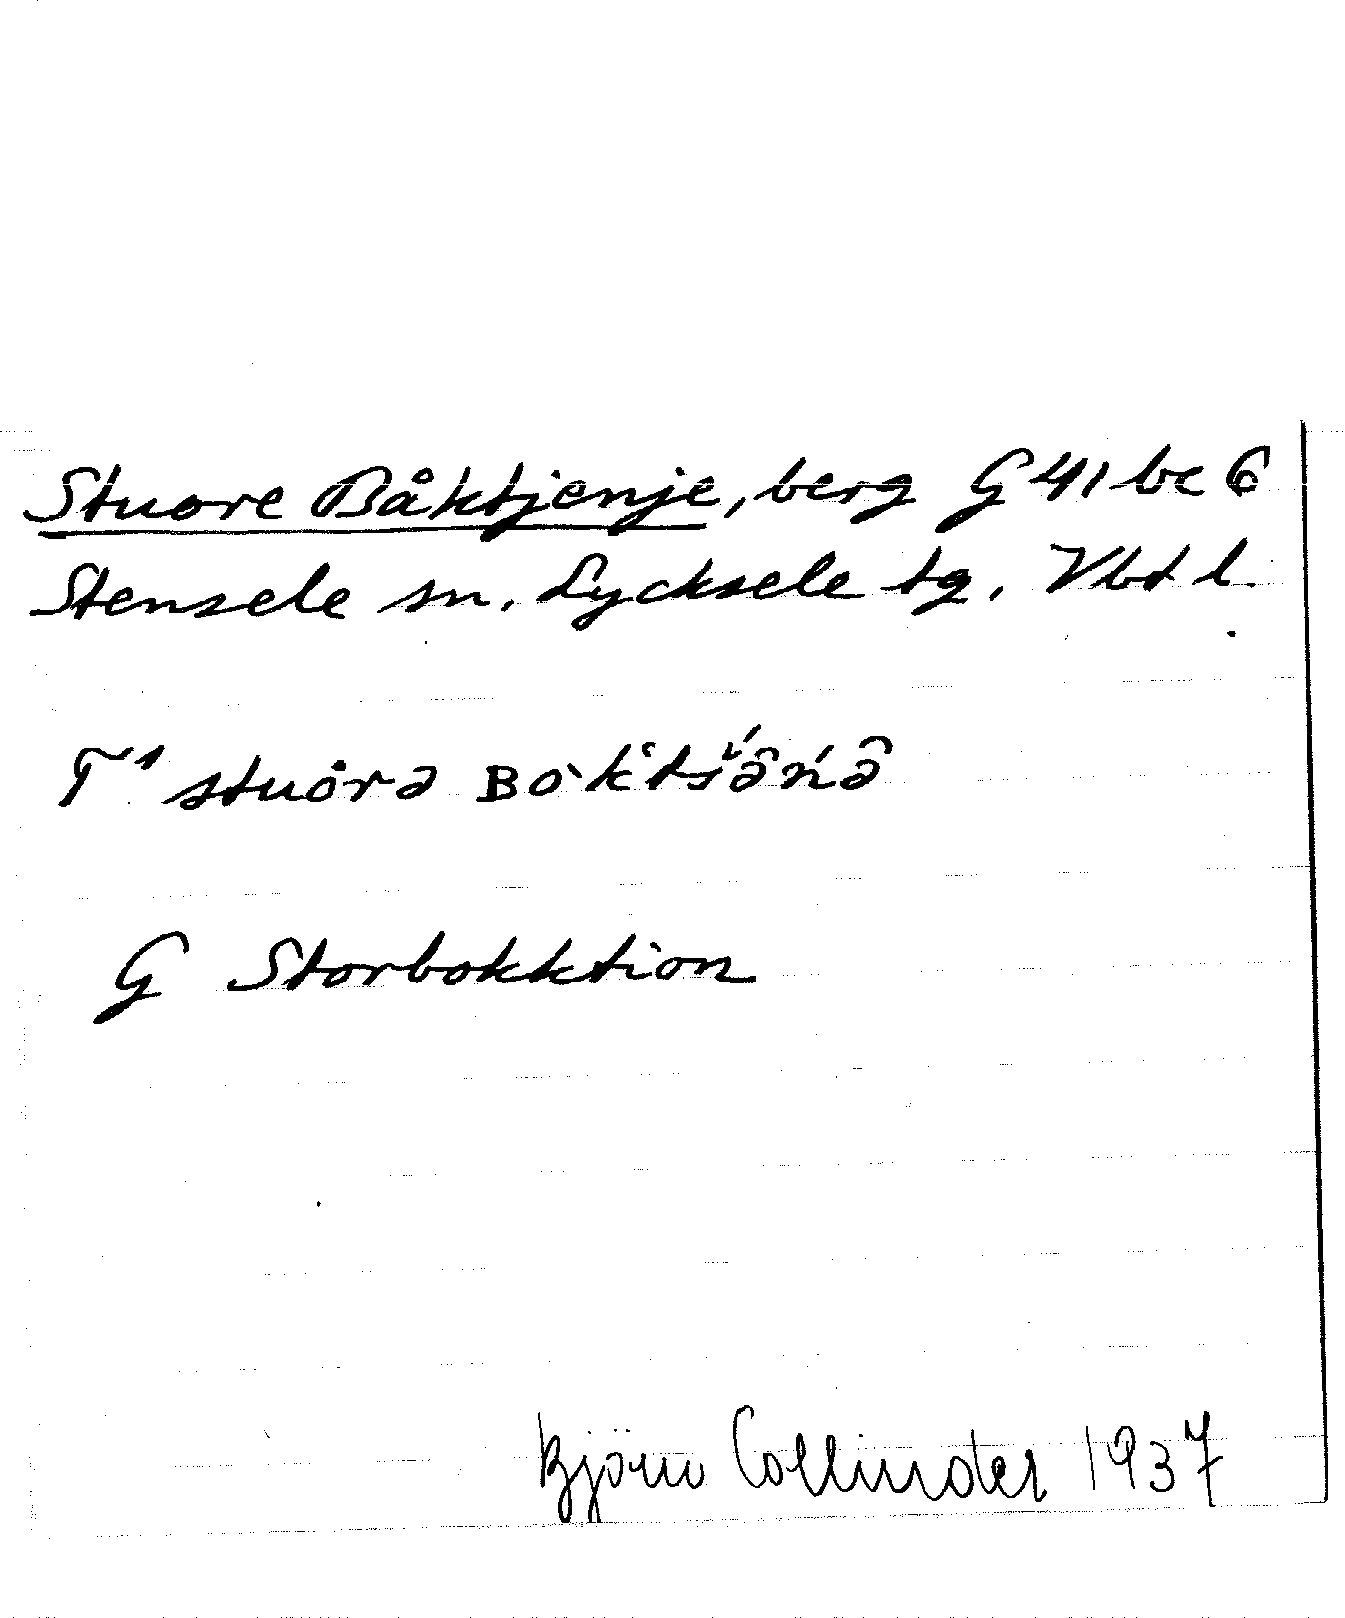 Stuore Båktjenje, berg G 41 bc 6
Stensele sn. Lycksele tg. Vbt l
T¹ stuȯrə ʙo`k̔tš́ə̂ńə̂
G Storbokktion
Björn Collinder 1937